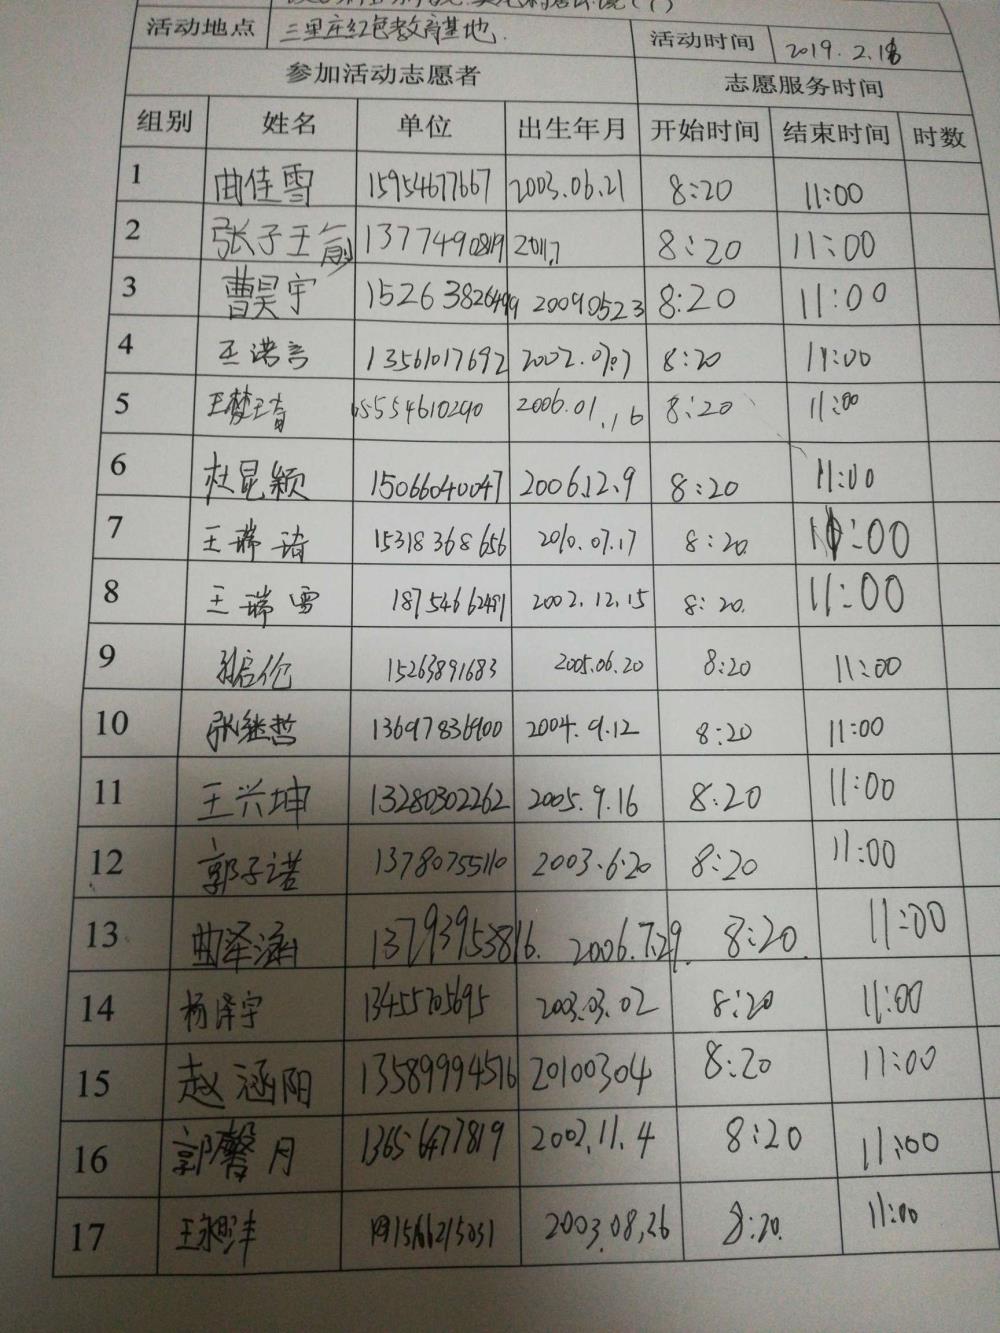 活动地点 三里庄红色教育基地. 活动时间 2019.2.18
参加活动志愿者 志愿服务时间
组别 姓名 单位 出生年月 开始时间 结束时间 时数
1 曲佳雪 15954677667 2003.06.21 8:20 11:00
2 张子王俞 13774490819 2011.7 8:20 11:00
3 曹昊宇 15263826499 20090523 8:20 11:00
4 王诺言 13561017692 2002.07.7 8:20 11:00
5 王梦琦 2006.01.16 8:20 11:00
6 杜昆颖 15066040047 2006.12.9 8:20 11:00
7 王瑞琦 15318368656 2010.07.17 8:20 11:00
8 王瑞雪 18754662491 2002.12.15 8:20 11:00
9 15263891683 2005.06.20 8:20 11:00
10 张继哲 13697836900 2004.9.12 8:20 11:00
11 王兴坤 13280302262 2005.9.16 8:20 11:00
12 郭子诺 13780755110 2003.6.20 8:20 11:00
13 曲泽涵 13793953816. 2006.7.29. 8:20. 11:00
14 杨泽宇 13455705695 2003.03.02 8:20 11:00
15 赵涵阳 13589994516 20100304 8:20 11:00
16 郭馨月 13656477819 2002.11.4 8:20 11:00
17 2003.08.26 8:20. 11:00